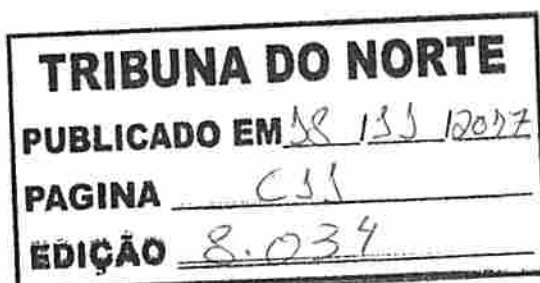 TRIBUNA DO NORTE
PUBLICADO EM 18 / 11 / 2017
PAGINA C11
EDIÇÃO 8.034